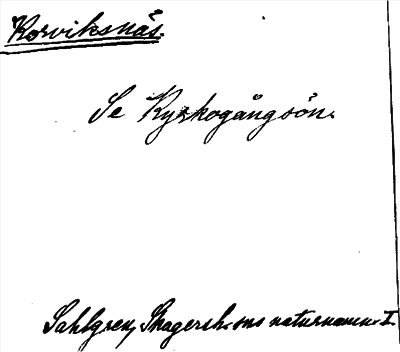 Korviksnäs.
Se Kyrkogångsön.
Sahlgren, Skagersh:sns naturnamn I.